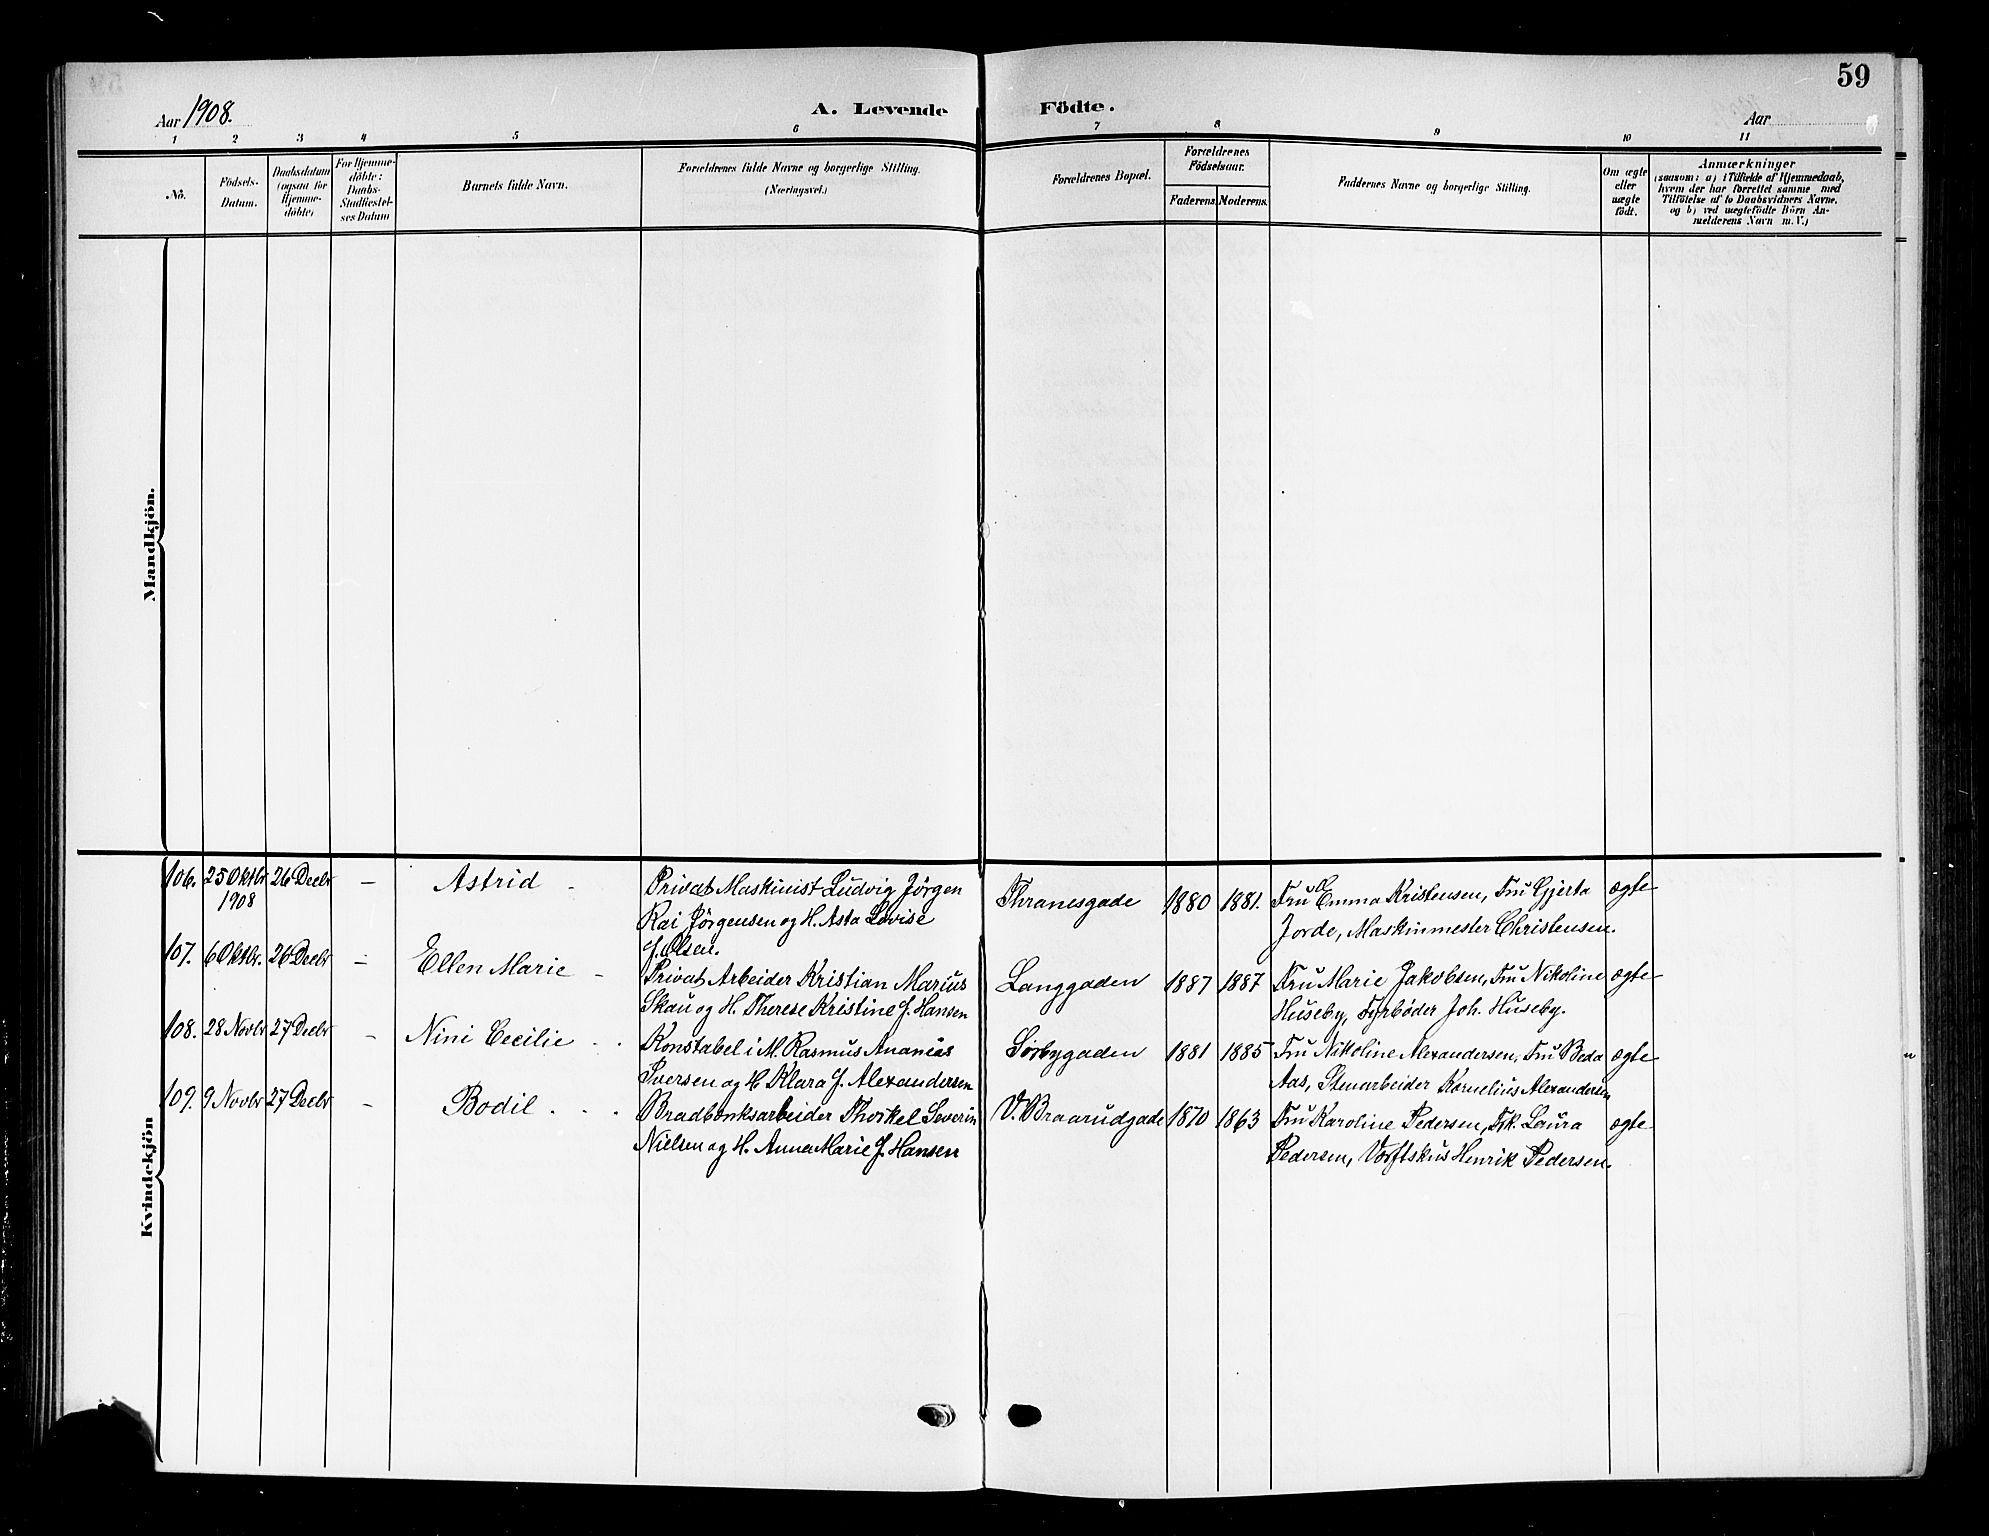 59
Aar 1908.
A. Levende Födte.
Aar
1 2 3 4 5 6 7 8 9 10 11
No.
Födsels-
Datum.
Daabsdatum
(ogsaa for
Hjemme-
döbte)
For Hjemme-
döbte:
Daabs-
Stadfæstel-
ses Datum
Barnets fulde Navn.
Forældrenes fulde Navne og borgerlige Stilling.
(Næringsvei.)
Forældrenes Bopæl.
Forældrenes
Födselsaar.
Faderens. Moderens.
Faddernes Navne og borgerlige Stilling.
Om ægte
eller
uægte
födt.
Anmærkninger
(saasom: a) i Tilfælde af Hjemmedaab,
hvem der har forrettet samme med
Tilföielse af to Daabsvidners Navne,
og b) ved uægtefödte Börn An-
melderens Navn m. V.)
Mandkjön.
Kvindekjön
106. 25 Oktbr 26 Decbr – Astrid Privat Maskinist Ludvig Jörgen Thranesgade 1880 1881. Fru Emma Kristensen, Fru Gjerta ægte
1908 Kai Jörgensen og H. Asta Lovise Jorde, Maskinmester Christensen.
f. Olsen.
107. 6 Oktbr. 26 Decbr – Ellen Marie Privat Arbeider Kristian Marius Langgaden 1887 1887 Fru Marie Jakobsen, Fru Nikoline ægte
Skau og H. Therese Kristine f. Hansen Huseby, Fyrbøder Joh. Huseby.
108. 28 Novbr 27 Decbr – Nini Cecilie Konstabel i M. Rasmus Ananias Sørbygaden 1881 1885 Fru Nikoline Alexandersen, Fru Beda ægte
Iversen og H Klara f. Alexandersen Aas, Stenarbeider Kornelius Alexandersen
109. 9 Novbr 27 Decbr – Bodil Bradbænksarbeider Thorkel Severin V. Braarudgade 1870 1863 Fru Karoline Pedersen, Frk. Laura ægte
Nielsen og H. Anna Marie f. Hansen Pedersen, Værftskus Henrik Pedersen.